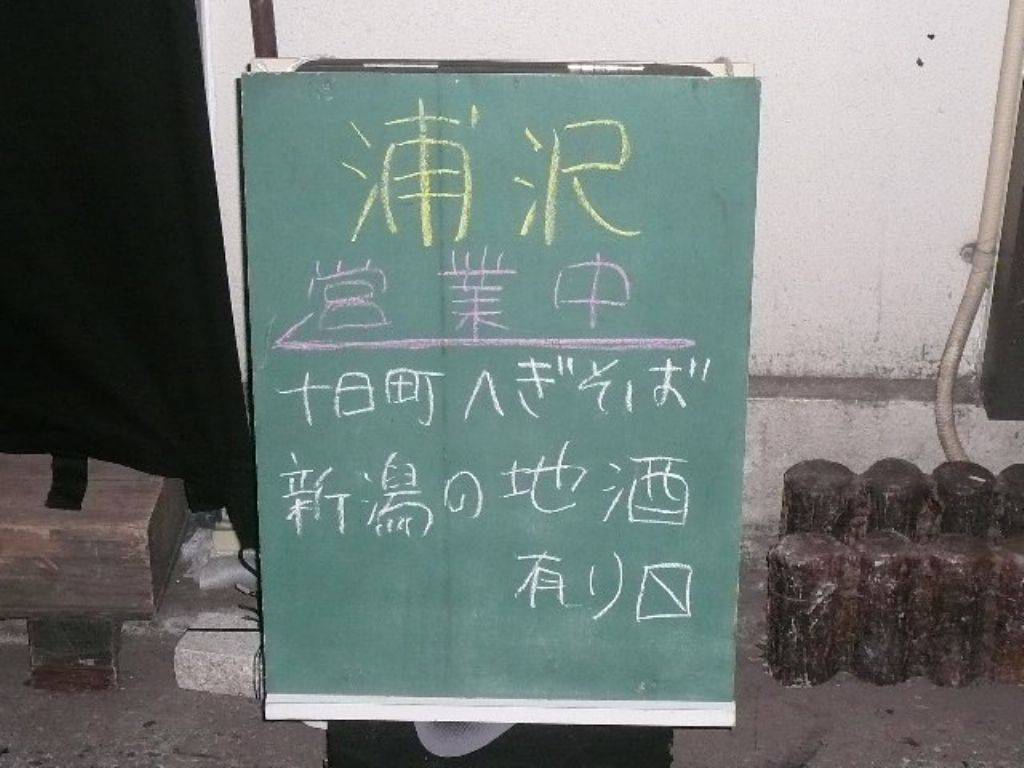 浦沢
営業中
十日町へぎそば
新潟の地酒
有り〼